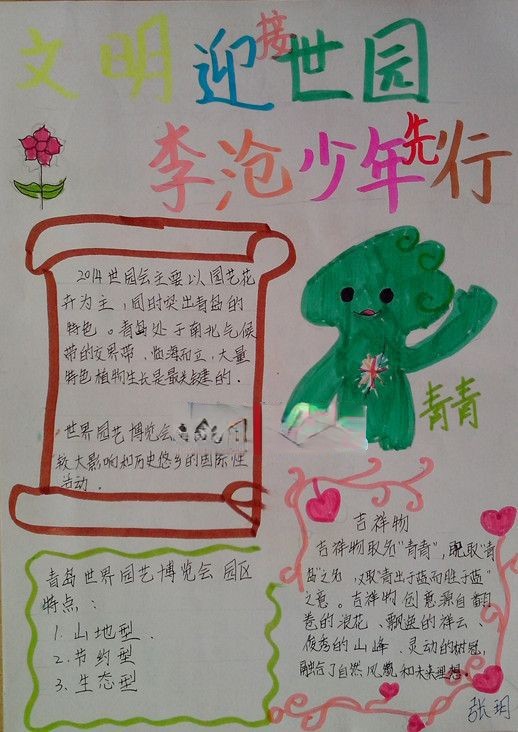 文明迎接世园
李沧少年先行
2014世园会主要以园艺花
卉为主,同时突出青岛的
特色。青岛处于南北气候
带的交界带、临海而立、大量
特色植物生长是最关键的.
世界园艺博览会
较大影响和历史悠久的国际性
活动.
青青
吉祥物
吉祥物取名"青青",既取"青
岛"之名,又取"青出于蓝而胜于蓝"
之意。吉祥物创意源自翻
卷的浪花、飘逸的祥云、
俊秀的山峰、灵动的树冠,
融合了自然风貌和未来理想.
青岛世界园艺博览会园区
特点:
1.山地型.
2.节约型
3.生态型
张玥